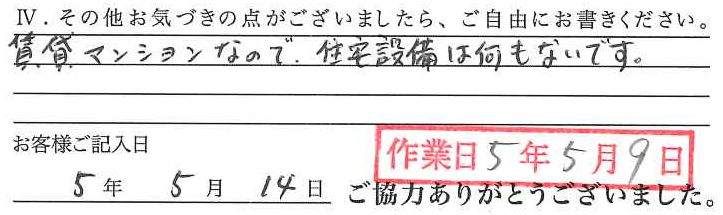 Ⅳ．その他お気づきの点がございましたら、ご自由にお書きください。
賃貸マンションなので、住宅設備は何もないです。
お客様ご記入日
作業日5年5月9日
5年 5月 14日 ご協力ありがとうございました。